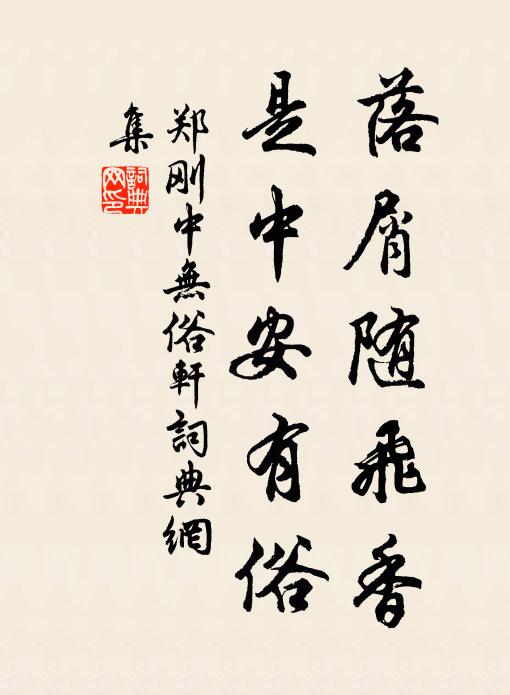 落屑随飛香
是中安有俗
郑刚中無俗軒詞典網
集
詞典
网印